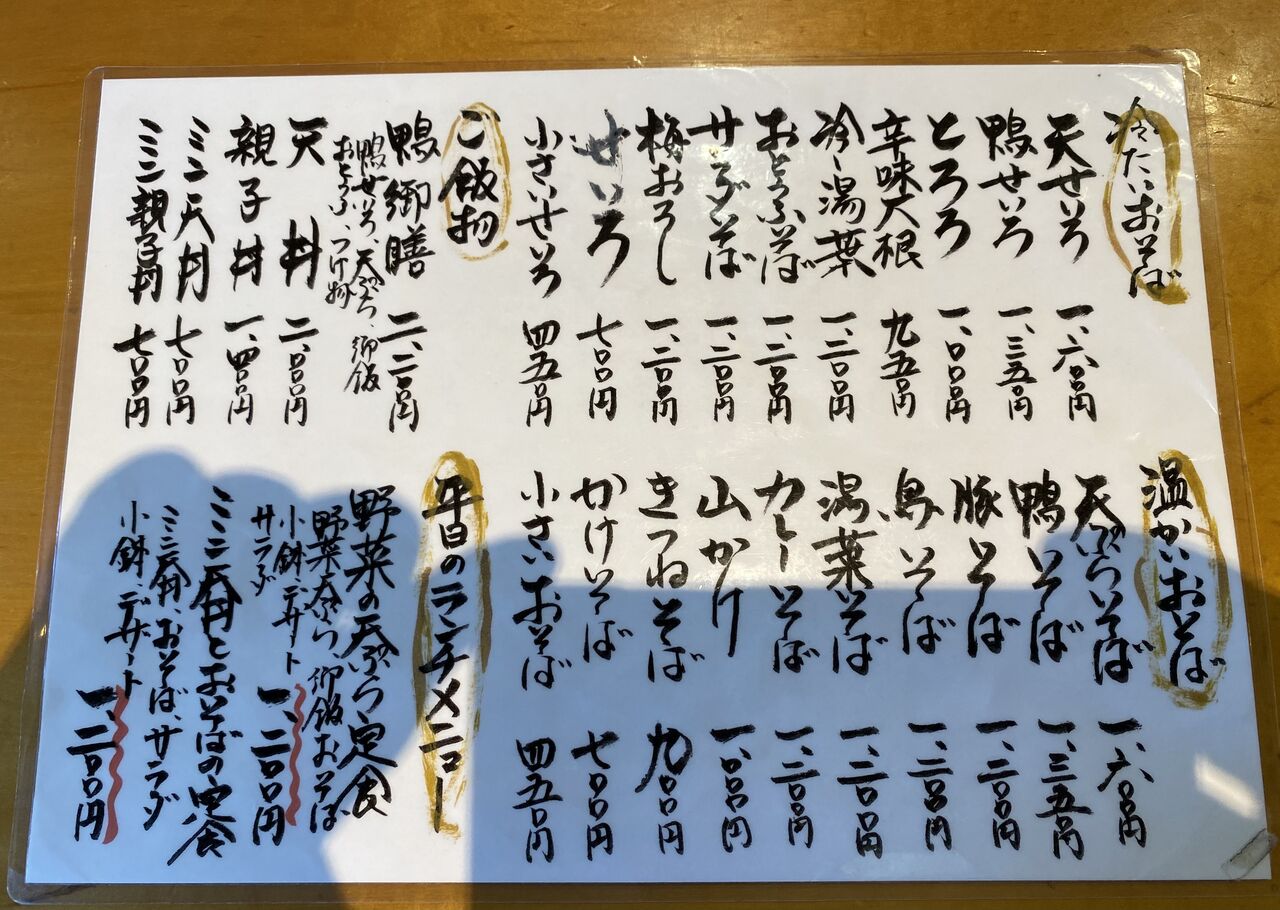 冷たいおそば
天せいろ 一、六〇〇円
鴨せいろ 一、三五〇円
とろろ 一、〇〇〇円
辛味大根 九五〇円
冷し湯葉 一、二〇〇円
おとうふそば 一、二〇〇円
サラダそば 一、二〇〇円
梅おろし 一、二〇〇円
せいろ 七〇〇円
小さいせいろ 四五〇円
ご飯物
鴨御膳 二、二〇〇円
鴨せいろ、天ぷら、御飯
おとうふ、つけ物
天丼 二、〇〇〇円
親子丼 一、四〇〇円
ミニ天丼 七〇〇円
ミニ親子丼 七〇〇円
温かいおそば
天ぷらそば 一、六〇〇円
鴨そば 一、三五〇円
豚そば 一、二〇〇円
鳥そば 一、二〇〇円
湯葉そば 一、二〇〇円
カレーそば 一、二〇〇円
山かけ 一、〇〇〇円
きつねそば 九〇〇円
かけそば 七〇〇円
小さいおそば 四五〇円
平日のランチメニュー
野菜の天ぷら定食
野菜天ぷら 御飯 おそば
小鉢、デザート
サラダ 一、二〇〇円
ミニ天丼とおそばの定食
ミニ天丼、おそば、サラダ
小鉢、デザート
一、二〇〇円